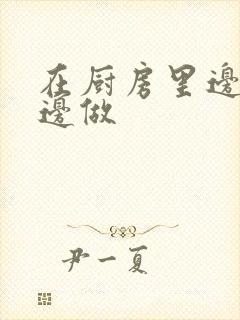 在厨房里邊
邊做
尹一夏